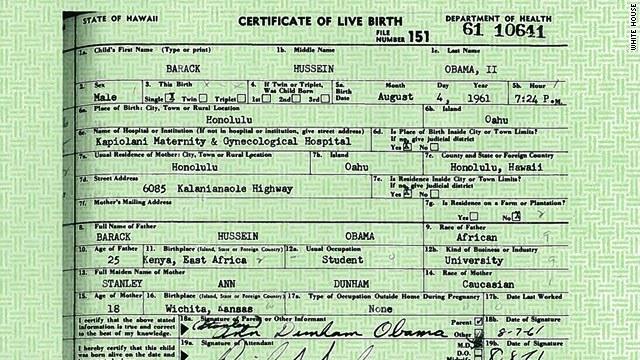 STATE OF HAWAII CERTIFICATE OF LIVE BIRTH DEPARTMENT OF HEALTH
FILE NUMBER 151 61 10641
WHITE HOUSE
1a. Child's First Name (Type or print) 1b. Middle Name 1c. Last Name
BARACK HUSSEIN OBAMA, II
2. Sex 3. This Birth 4. If Twin or Triplet, Was Child Born 5a. Birth Date Month Day Year 5b. Hour
Male Single X Twin Triplet 1st 2nd 3rd August 4, 1961 7:24 P.M.
6a. Place of Birth: City, Town or Rural Location 6b. Island
Honolulu Oahu
6c. Name of Hospital or Institution (If not in hospital or institution, give street address) 6d. Is Place of Birth Inside City or Town Limits? If no, give judicial district
Kapiolani Maternity & Gynecological Hospital Yes X No
7a. Usual Residence of Mother: City, Town or Rural Location 7b. Island 7c. County and State or Foreign Country
Honolulu Oahu Honolulu, Hawaii
7d. Street Address 7e. Is Residence Inside City or Town Limits? If no, give judicial district
6085 Kalanianaole Highway Yes X No
7f. Mother's Mailing Address 7g. Is Residence on a Farm or Plantation?
Yes No X
8. Full Name of Father 9. Race of Father
BARACK HUSSEIN OBAMA African
10. Age of Father 11. Birthplace (Island, State or Foreign Country) 12a. Usual Occupation 12b. Kind of Business or Industry
25 Kenya, East Africa Student University
13. Full Maiden Name of Mother 14. Race of Mother
STANLEY ANN DUNHAM Caucasian
15. Age of Mother 16. Birthplace (Island, State or Foreign Country) 17a. Type of Occupation Outside Home During Pregnancy 17b. Date Last Worked
18 Wichita, Kansas None
I certify that the above stated information is true and correct to the best of my knowledge. 18a. Signature of Parent or Other Informant Parent Other 18b. Date of Signature
(Stanley) Ann Dunham Obama 8-7-61
I hereby certify that this child was born alive on the date and 19a. Signature of Attendant M.D. D.O. 19b. Date of Signature